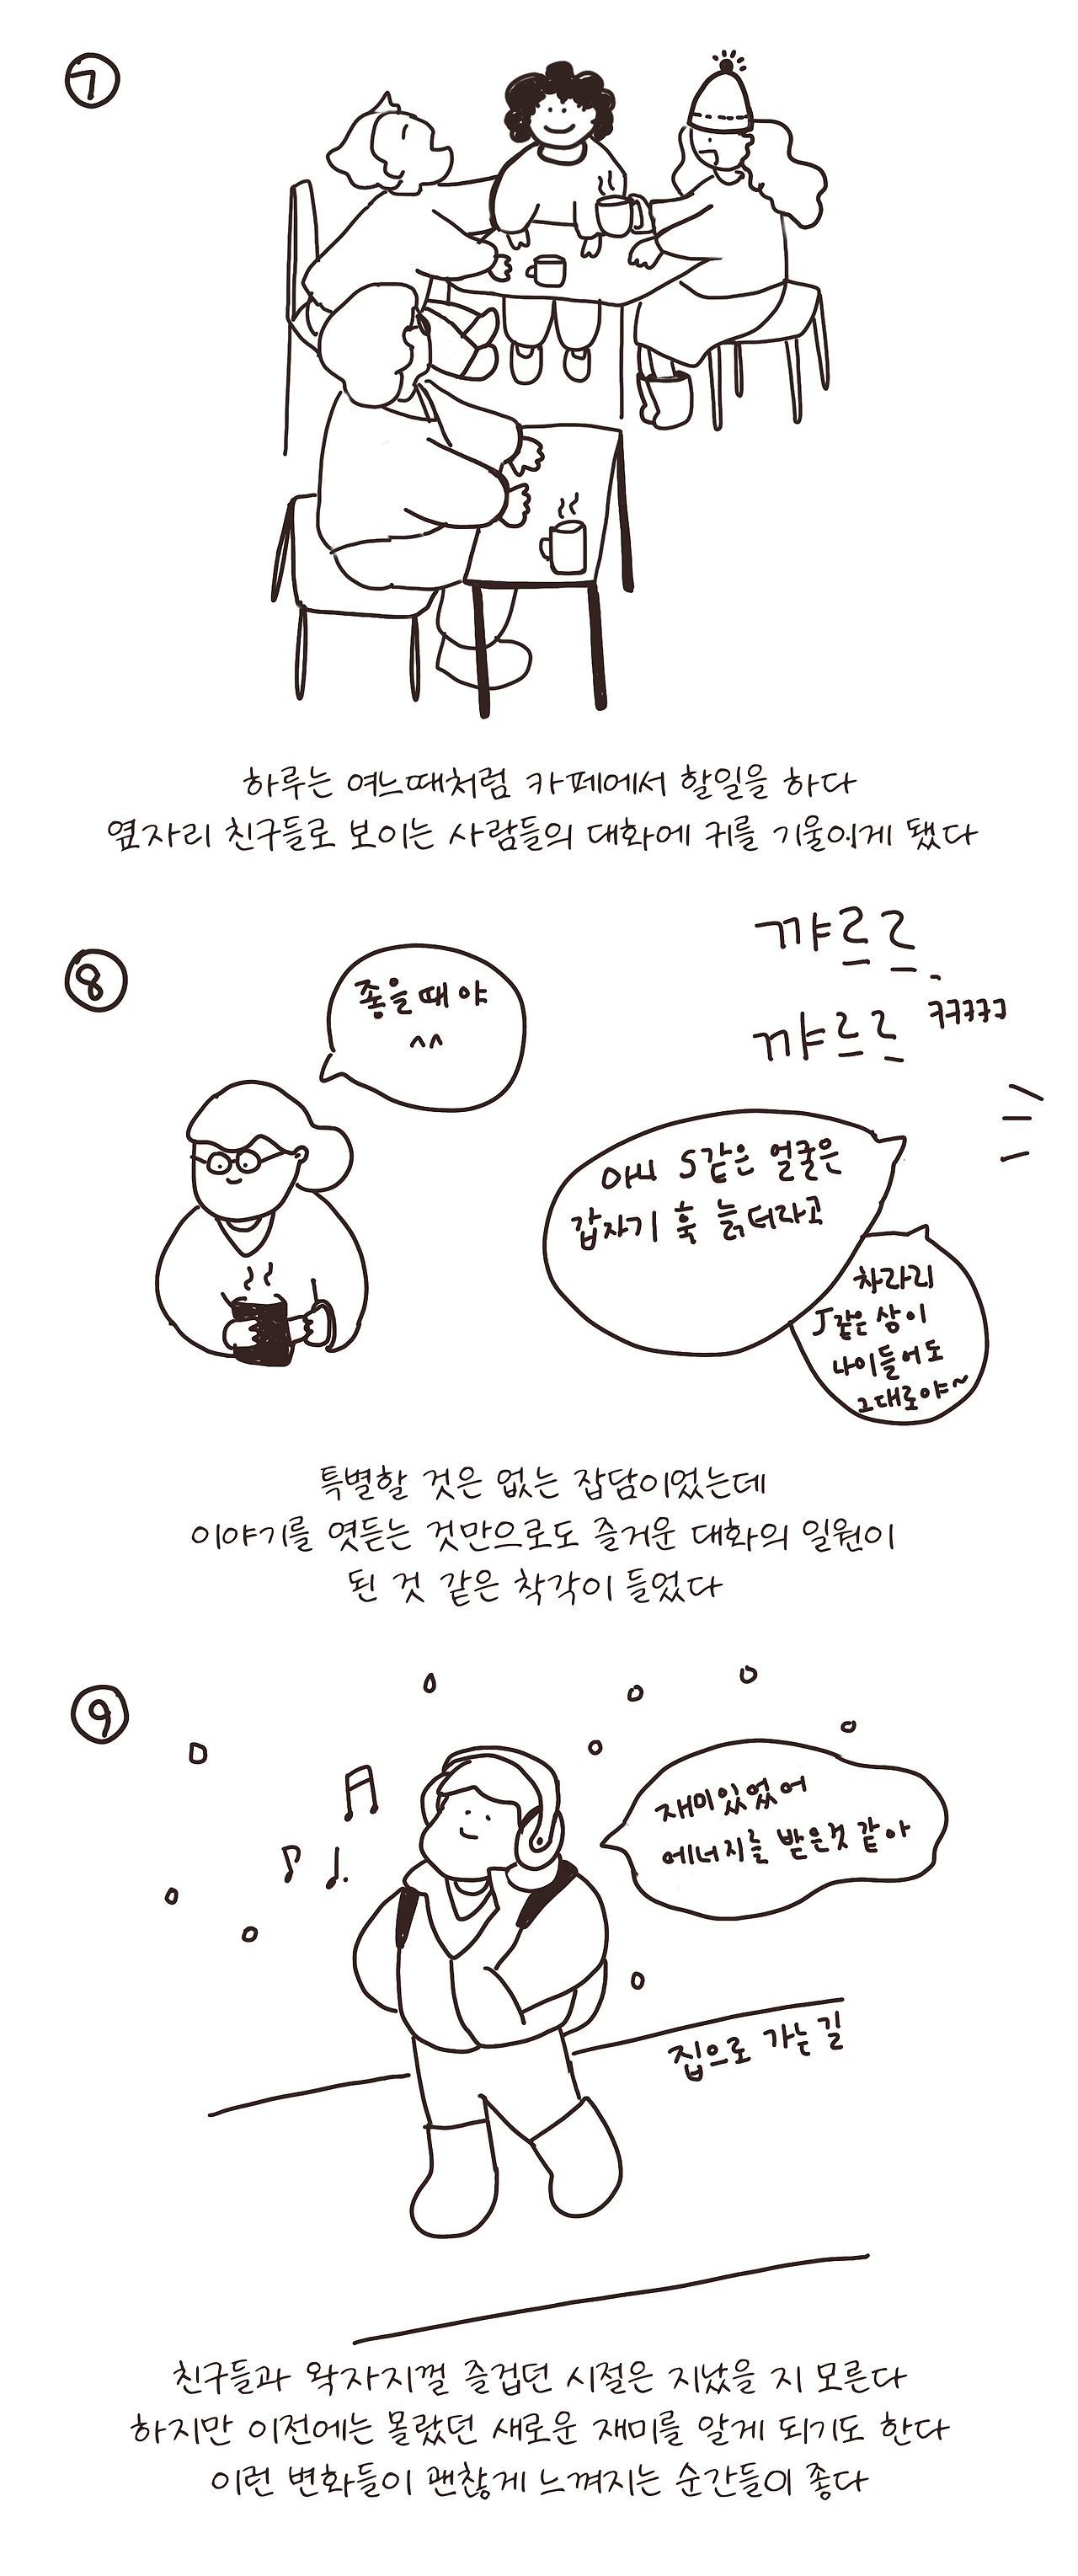 7
하루는 여느때처럼 카페에서 할일을 하다
옆자리 친구들로 보이는 사람들의 대화에 귀를 기울이게 됐다
8
좋을때야
^^
꺄르르
꺄르르 ㅋㅋㅋㅋㅋ
아니 S같은 얼굴은
갑자기 훅 늙더라고
차라리
J같은 상이
나이들어도
그대로야~
특별할 것은 없는 잡담이었는데
이야기를 엿듣는 것만으로도 즐거운 대화의 일원이
된 것 같은 착각이 들었다
9
재미있었어
에너지를 받은것 같아
집으로 가는길
친구들과 왁자지껄 즐겁던 시절은 지났을 지 모른다
하지만 이전에는 몰랐던 새로운 재미를 알게 되기도 한다
이런 변화들이 괜찮게 느껴지는 순간들이 좋다